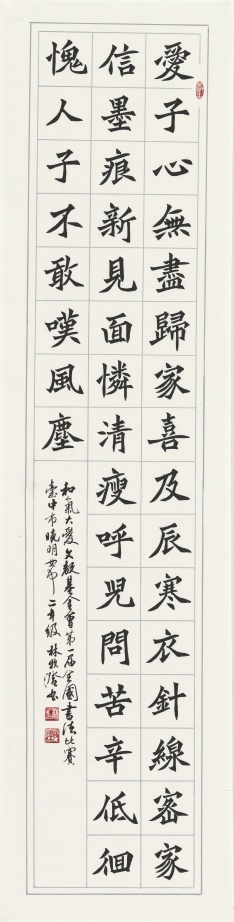 愛子心無盡歸家喜及辰寒衣針線密家
信墨痕新見面憐清瘦呼兒問苦辛低徊
愧人子不敢嘆風塵
和氣大愛文教基金會第一屆全國書法比賽
臺中市曉明女中二年級林